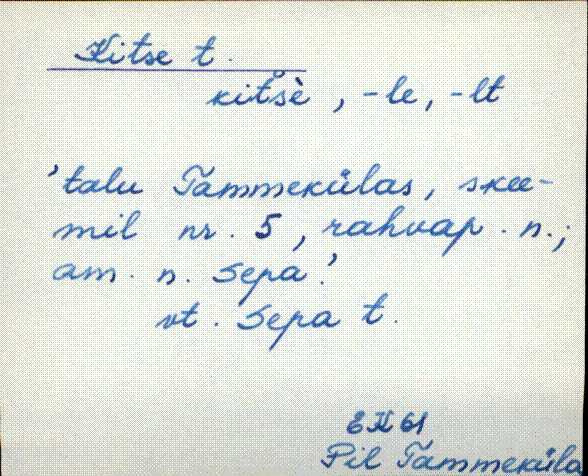 Kitse t.
kitsè, -le, -lt
'talu Tammekülas, skee-
mil nr. 5, rahvap. n.;
am. n. Sepa.'
vt. Sepa t.
EK 61
Pil Tammeküla